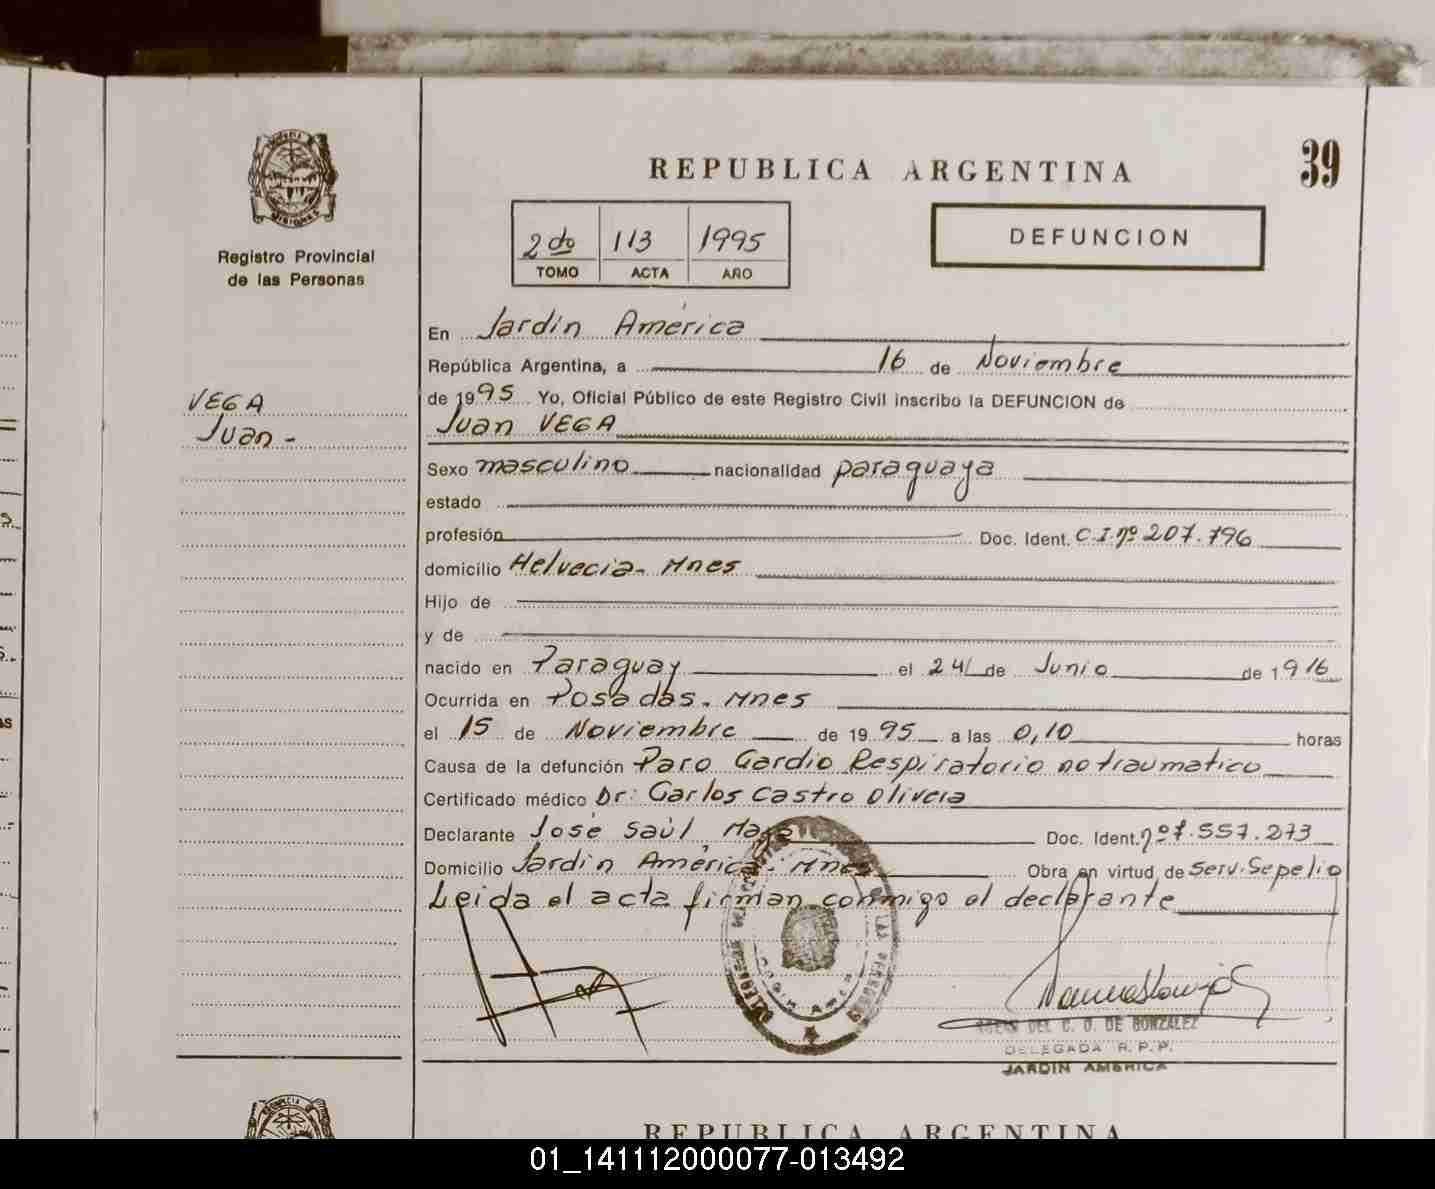 39
REPUBLICA ARGENTINA
2do 113 1995
TOMO ACTA AÑO
DEFUNCION
MISIONES
Registro Provincial
de las Personas
VEGA
Juan -
En Jardín América
República Argentina, a 16 de Noviembre
de 1995 Yo, Oficial Público de este Registro Civil inscribo la DEFUNCION de
Juan VEGA
Sexo masculino nacionalidad paraguaya
estado
profesión Doc. Ident. C.I.nº 207.796
domicilio Helvecia - Mnes
Hijo de
y de
nacido en Paraguay el 24 de Junio de 1916
Ocurrida en Posadas - Mnes
el 15 de Noviembre de 1995 a las 0,10 horas
Causa de la defunción Paro Cardio Respiratorio no traumatico
Certificado médico Dr: Carlos Castro Olivera
Declarante José Saúl Doc. Ident. nº 7.557.273
Domicilio Jardín América - Mnes Obra en virtud de Serv. Sepelio
Leida el acta firman conmigo el declarante
DEL C. O. DE GONZALEZ
DELEGADA R.P.P.
JARDIN AMERICA
REPUBLICA ARGENTINA
01_141112000077-013492